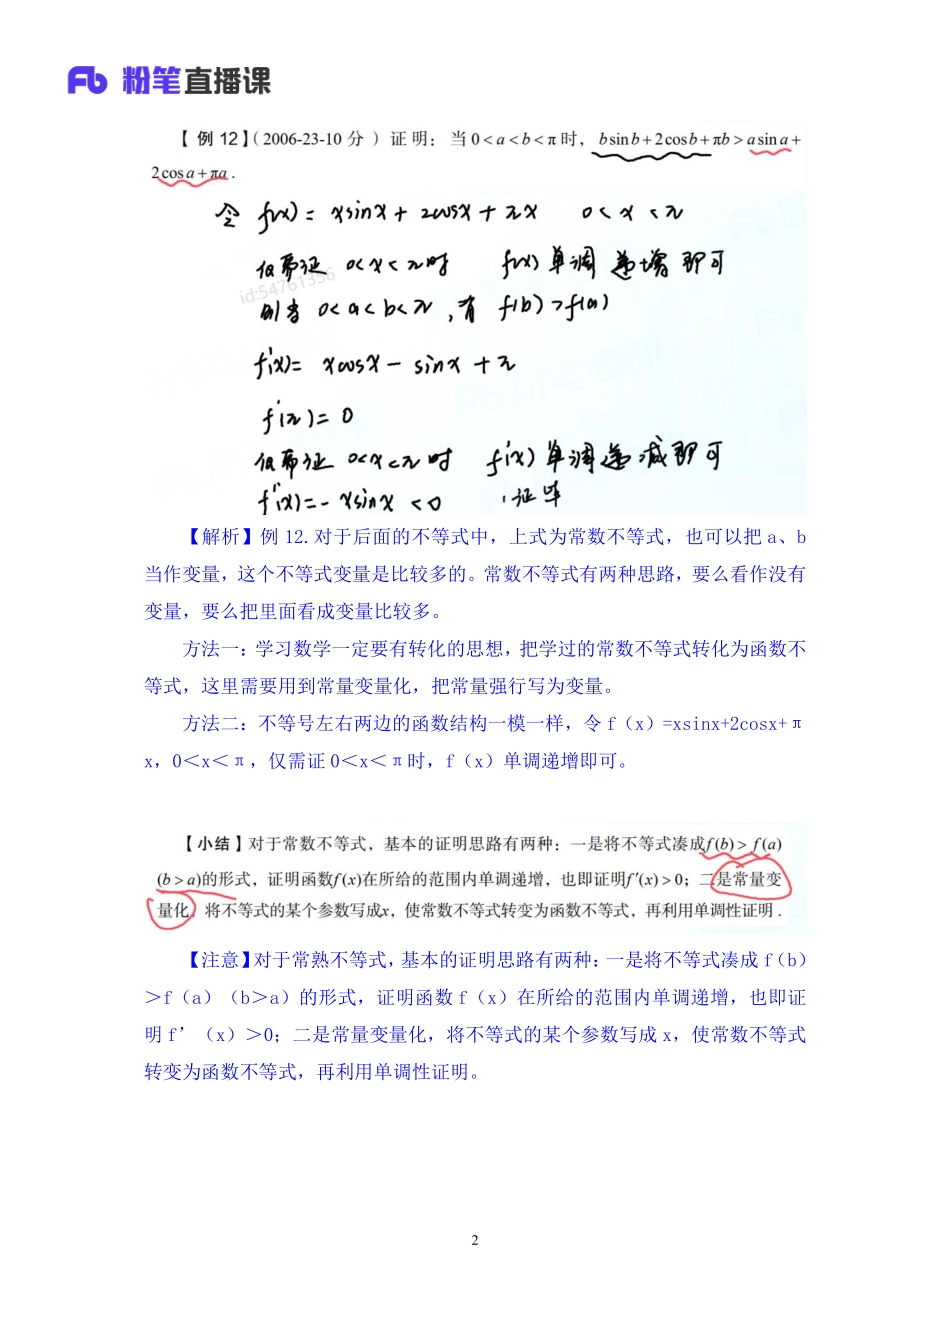 粉笔直播课
【 例 12】( 2006-23-10 分 ) 证 明: 当 0 < a < b < π 时, b sin b + 2 cos b + πb > a sin a +
2 cos a + πa .
令 f(x) = xsinx + 2cosx + πx 0 < x < π
仅需证 0<x<π时 f(x) 单调 递增 即可
id:54761356
则当 0<a<b<π, 有 f(b) > f(a)
f'(x) = xcosx - sinx + π
f'(π) = 0
仅需证 0<x<π时 f'(x) 单调递减即可
f''(x) = - xsinx < 0 , 证毕
【解析】例 12.对于后面的不等式中，上式为常数不等式，也可以把 a、b
当作变量，这个不等式变量是比较多的。常数不等式有两种思路，要么看作没有
变量，要么把里面看成变量比较多。
方法一：学习数学一定要有转化的思想，把学过的常数不等式转化为函数不
等式，这里需要用到常量变量化，把常量强行写为变量。
方法二：不等号左右两边的函数结构一模一样，令 f（x）=xsinx+2cosx+π
x，0＜x＜π，仅需证 0＜x＜π时，f（x）单调递增即可。
【 小结 】对于常数不等式，基本的证明思路有两种：一是将不等式凑成f(b) > f(a)
(b > a)的形式，证明函数f(x)在所给的范围内单调递增，也即证明f′(x) > 0；二是常量变
量化，将不等式的某个参数写成x，使常数不等式转变为函数不等式，再利用单调性证明 .
【注意】对于常熟不等式，基本的证明思路有两种：一是将不等式凑成 f（b）
＞f（a）（b＞a）的形式，证明函数 f（x）在所给的范围内单调递增，也即证
明 f’（x）＞0；二是常量变量化，将不等式的某个参数写成 x，使常数不等式
转变为函数不等式，再利用单调性证明。
2